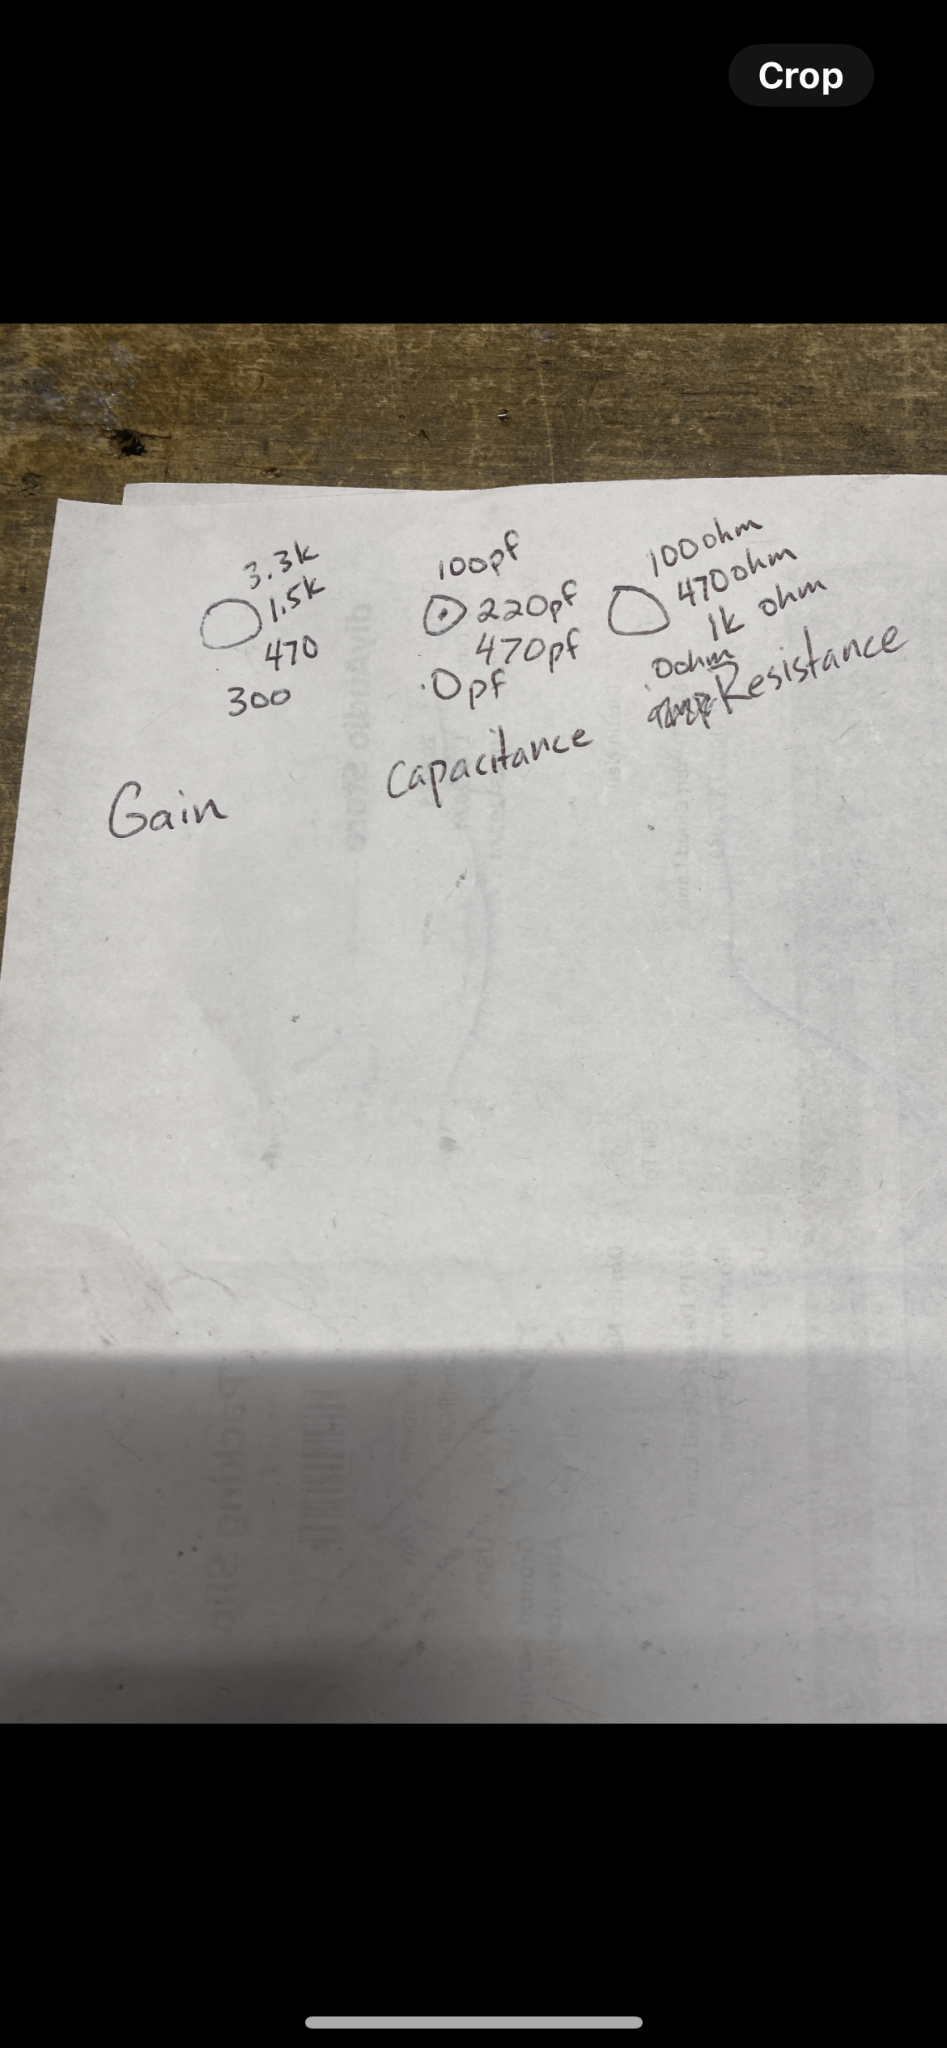 Crop
3.3k
1.5k
470
300
Gain
100pf
220pf
470pf
0pf
Capacitance
100ohm
470ohm
1k ohm
0ohm
Resistance